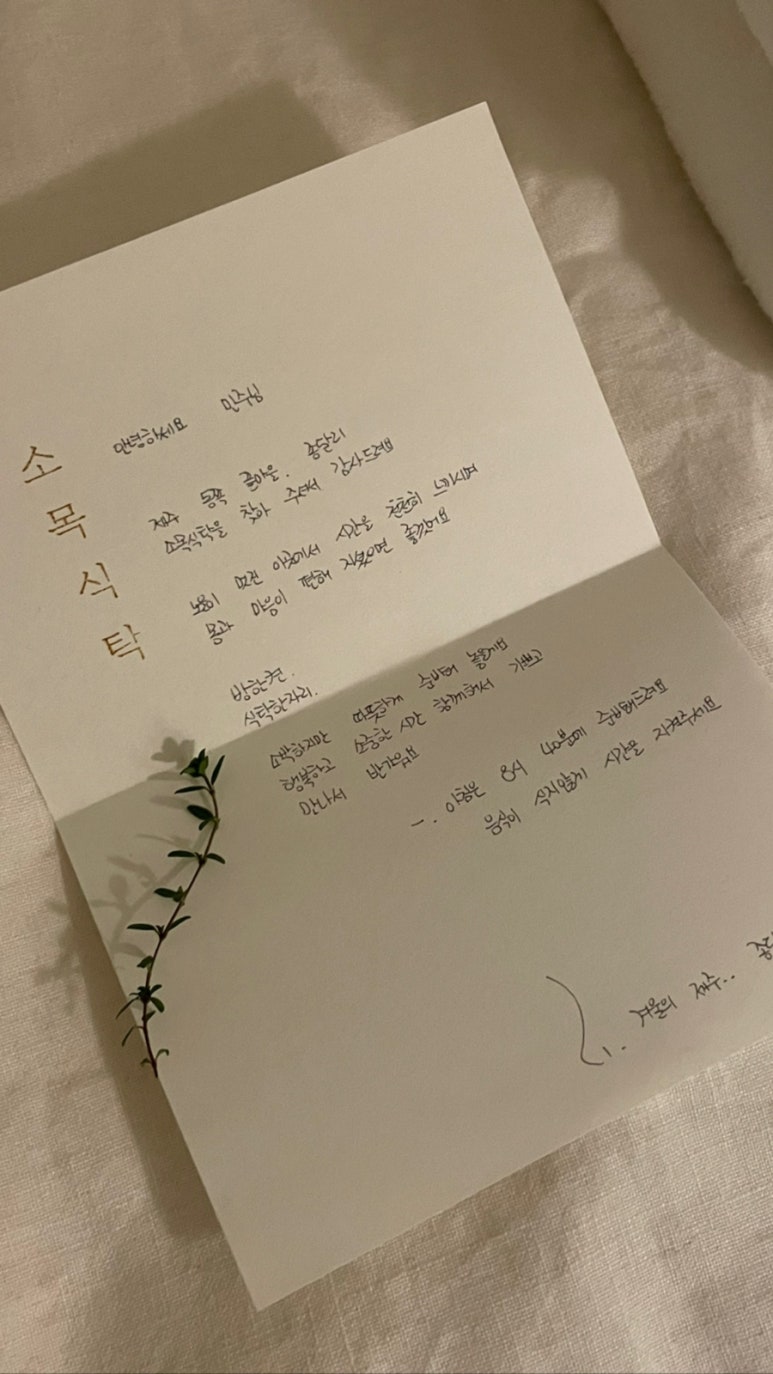 소
목
식
탁
안녕하세요 민주님
제주 동쪽 끝마을. 종달리
소목식탁을 찾아 주셔서 감사드려요
노을이 멋진 이곳에서 시간을 천천히 느끼시며
몸과 마음이 편해 지셨으면 좋겠어요
방한켠.
식탁한자리.
소박하지만 따뜻하게 준비해 놓을게요
행복하고 소중한 시간 함께해서 기쁘고
만나서 반가워요
ㅡ. 아침은 8시 40분에 준비해드려요
음식이 식지않게 시간을 지켜주세요
겨울의 제주..